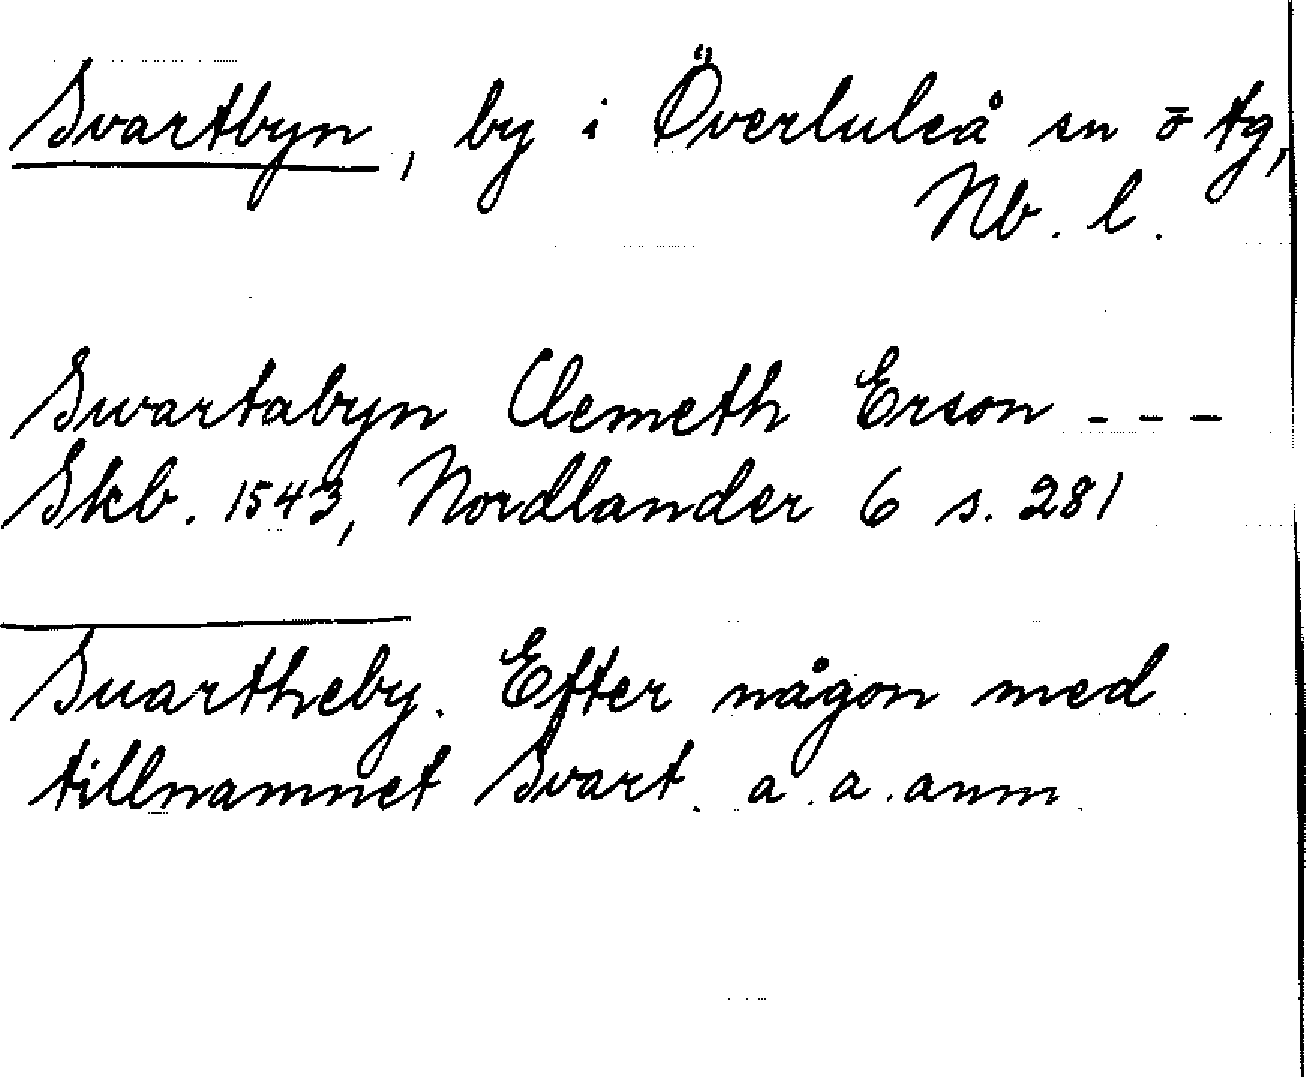 Svartbyn, by i Överluleå sn o tg,
Nb. l.
Swartabyn Clemeth Erson - - -
Skb. 1543, Nordlander 6 s. 281
Suartheby. Efter någon med
tillnamnet Svart. a. a. anm